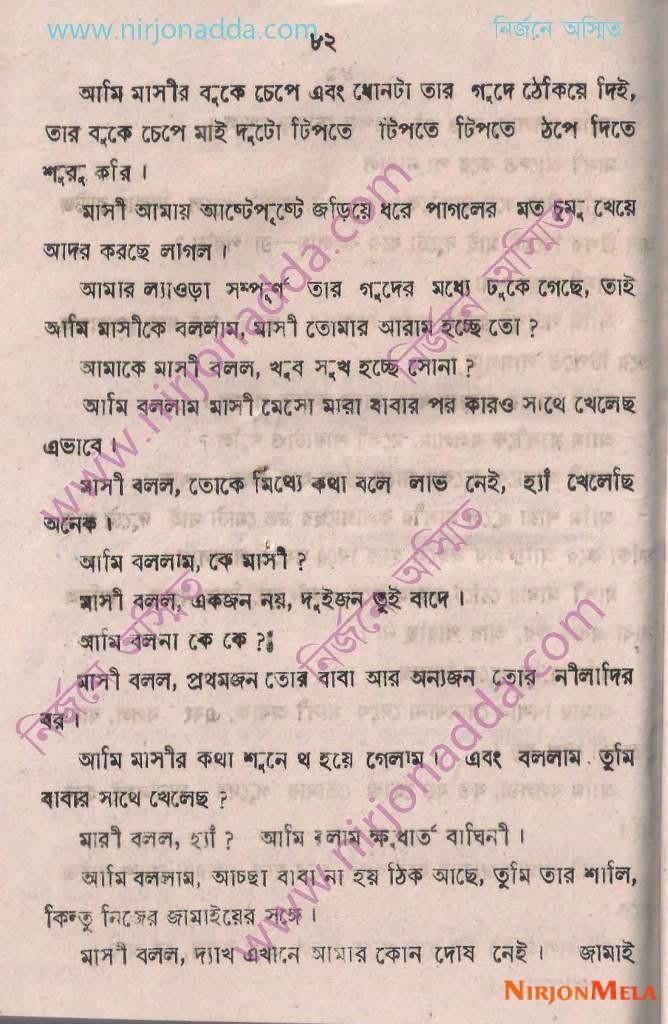 www.nirjonadda.com
নির্জনে অস্মিত
৮২
আমি মাসীর বুকে চেপে এবং ধোনটা তার গুদে ঠেকিয়ে দিই,
তার বুকে চেপে মাই দুটো টিপতে টিপতে টিপতে ঠপে দিতে
শুরু করি ।
মাসী আমায় আষ্টেপৃষ্টে জড়িয়ে ধরে পাগলের মত চুমু খেয়ে
আদর করছে লাগল ।
আমার ল্যাওড়া সম্পূর্ণ তার গুদের মধ্যে ঢুকে গেছে, তাই
আমি মাসীকে বললাম, মাসী তোমার আরাম হচ্ছে তো ?
আমাকে মাসী বলল, খুব সুখ হচ্ছে সোনা ?
আমি বললাম মাসী মেসো মারা যাবার পর কারও সাথে খেলেছ
এভাবে ।
মাসী বলল, তোকে মিথ্যে কথা বলে লাভ নেই, হ্যাঁ খেলেছি
অনেক ।
আমি বললাম, কে মাসী ?
মাসী বলল, একজন নয়, দুইজন তুই বাদে ।
আমি বলনা কে কে ?
মাসী বলল, প্রথমজন তোর বাবা আর অন্যজন তোর নীলাদির
বর ।
আমি মাসীর কথা শুনে থ হয়ে গেলাম । এবং বললাম তুমি
বাবার সাথে খেলেছ ?
মারী বলল, হ্যাঁ ? আমি বলাম ক্ষুধার্ত বাঘিনী ।
আমি বললাম, আচ্ছা বাবা না হয় ঠিক আছে, তুমি তার শালি,
কিন্তু নিজের জামাইয়ের সঙ্গে ।
মাসী বলল, দ্যাখ এখানে আমার কোন দোষ নেই । জামাই
www.nirjonadda.com
নির্জনে অস্মিত
নির্জনে অস্মিত
নির্জনে অস্মিত
www.nirjonadda.com
NIRJONMELA